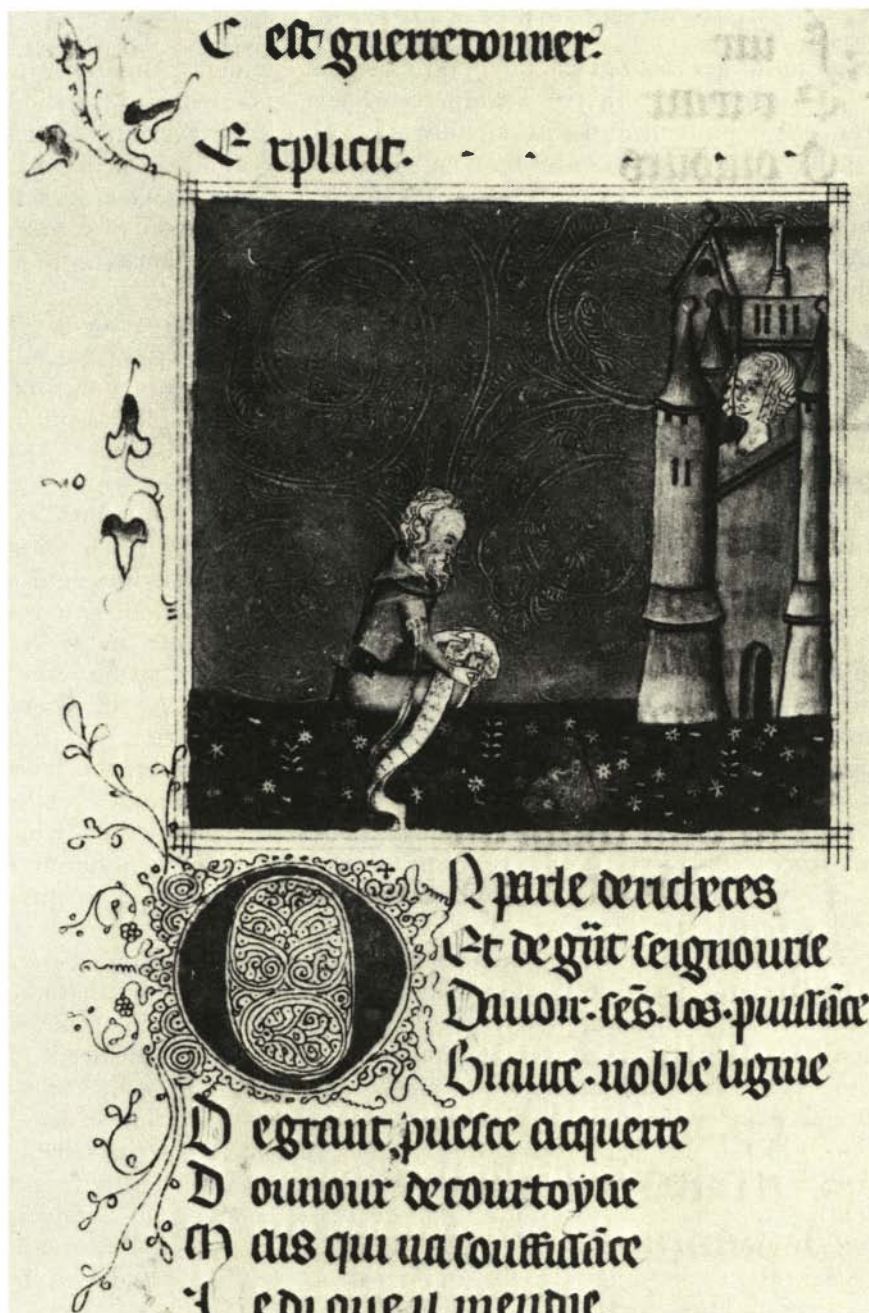 C est guerredonner.
E xplicit.
20
O N parle de richeces
Et de gñt seignourie
Dauoir. sẽs. los. puissãce
Biaute. noble lignie
D e grant, puesce acquerre
D ounour de courtoysie
M ais qui na souffissãce
I e di que il mendie